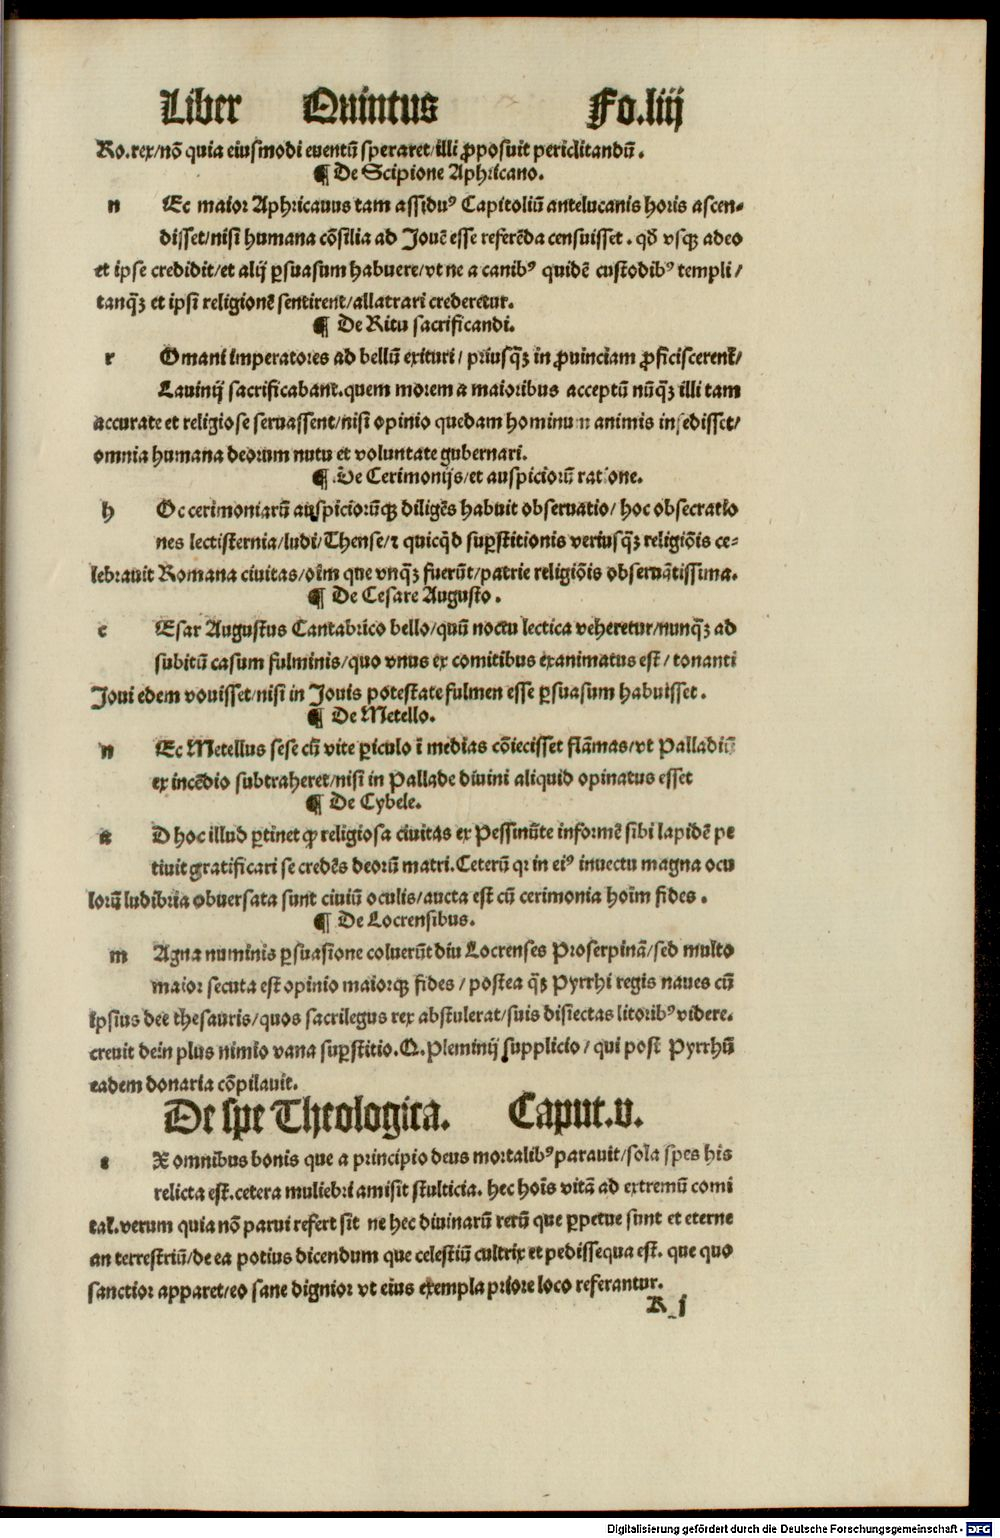 Liber Quintus Fo.liij
Ro.rex/nō quia eiusmodi euentū speraret/illi ꝓposuit periclitandū.
¶ De Scipione Aphricano.
n Ec maior Aphricanus tam assiduꝰ Capitoliū antelucanis horis ascen-
disset/nisi humana cōsilia ad Jouē esse referēda censuisset. qđ vsqꝫ adeo
et ipse credidit/et alij ꝑsuasum habuere/vt ne a canibꝰ quidē custodibꝰ templi/
tanq̄ꝫ et ipsi religionē sentirent/allatrari crederetur.
¶ De Ritu sacrificandi.
r Omani imperatores ad bellū exituri/ priusq̄ꝫ in ꝓuinciam ꝓficiscerent̄/
Lauinij sacrificabant.quem morem a maioribus acceptū nūq̄ꝫ illi tam
accurate et religiose seruassent/nisi opinio quedam hominum animis insedisset/
omnia humana deorum nutu et voluntate gubernari.
¶ De Cerimonijs/et auspiciorū ratione.
h Oc cerimoniarū auspiciorūqꝫ diligēs habuit obseruatio/ hoc obsecratio
nes lectisternia/ludi/Thense/⁊ quicq̄d suꝑstitionis veriusq̄ꝫ religiōis ce-
lebrauit Romana ciuitas/oīm que vnq̄ꝫ fuerūt/patrie religiōis obseruātissima.
¶ De Cesare Augusto.
c Esar Augustus Cantabrico bello/quū noctu lectica veheretur/nunq̄ꝫ ad
subitū casum fulminis/quo vnus ex comitibus exanimatus est/ tonanti
Joui edem vouisset/nisi in Jouis potestate fulmen esse ꝑsuasum habuisset.
¶ De Metello.
n Ec Metellus sese cū vite ꝑiculo ī medias cōiecisset flāmas/vt Palladiū
ex incēdio subtraheret/nisi in Pallade diuini aliquid opinatus esset
¶ De Cybele.
a D hoc illud ꝑtinet ꝙ religiosa ciuitas ex Pessinūte informē sibi lapidē pe
tiuit gratificari se credēs deorū matri.Ceterū qꝛ in eiꝰ inuectu magna ocu
lorū ludibria obuersata sunt ciuiū oculis/aucta est cū cerimonia hoīm fides.
¶ De Locrensibus.
m Agna numinis ꝑsuasione coluerūt diu Locrenses Proserpinā/sed multo
maior secuta est opinio maiorqꝫ fides/ postea q̄ꝫ Pyrrhi regis naues cū
ipsius dee thesauris/quos sacrilegus rex abstulerat/suis disiectas litoribꝰ videre.
creuit dein plus nimio vana suꝑstitio.Q.Pleminij supplicio/ qui post Pyrrhū
eadem donaria cōpilauit.
De spe Theologica. Caput.v.
e X omnibus bonis que a principio deus mortalibꝰ parauit/sola spes his
relicta est.cetera muliebri amisit stulticia. hec hoīs vitā ad extremū comi
tat̄.verum quia nō parui refert sit ne hec diuinarū rerū que ꝑpetue sunt et eterne
an terrestriū/de ea potius dicendum que celestiū cultrix et pedissequa est. que quo
sanctior apparet/eo sane dignior vt eius exempla priore loco referantur.
K j
Digitalisierung gefördert durch die Deutsche Forschungsgemeinschaft - DFG